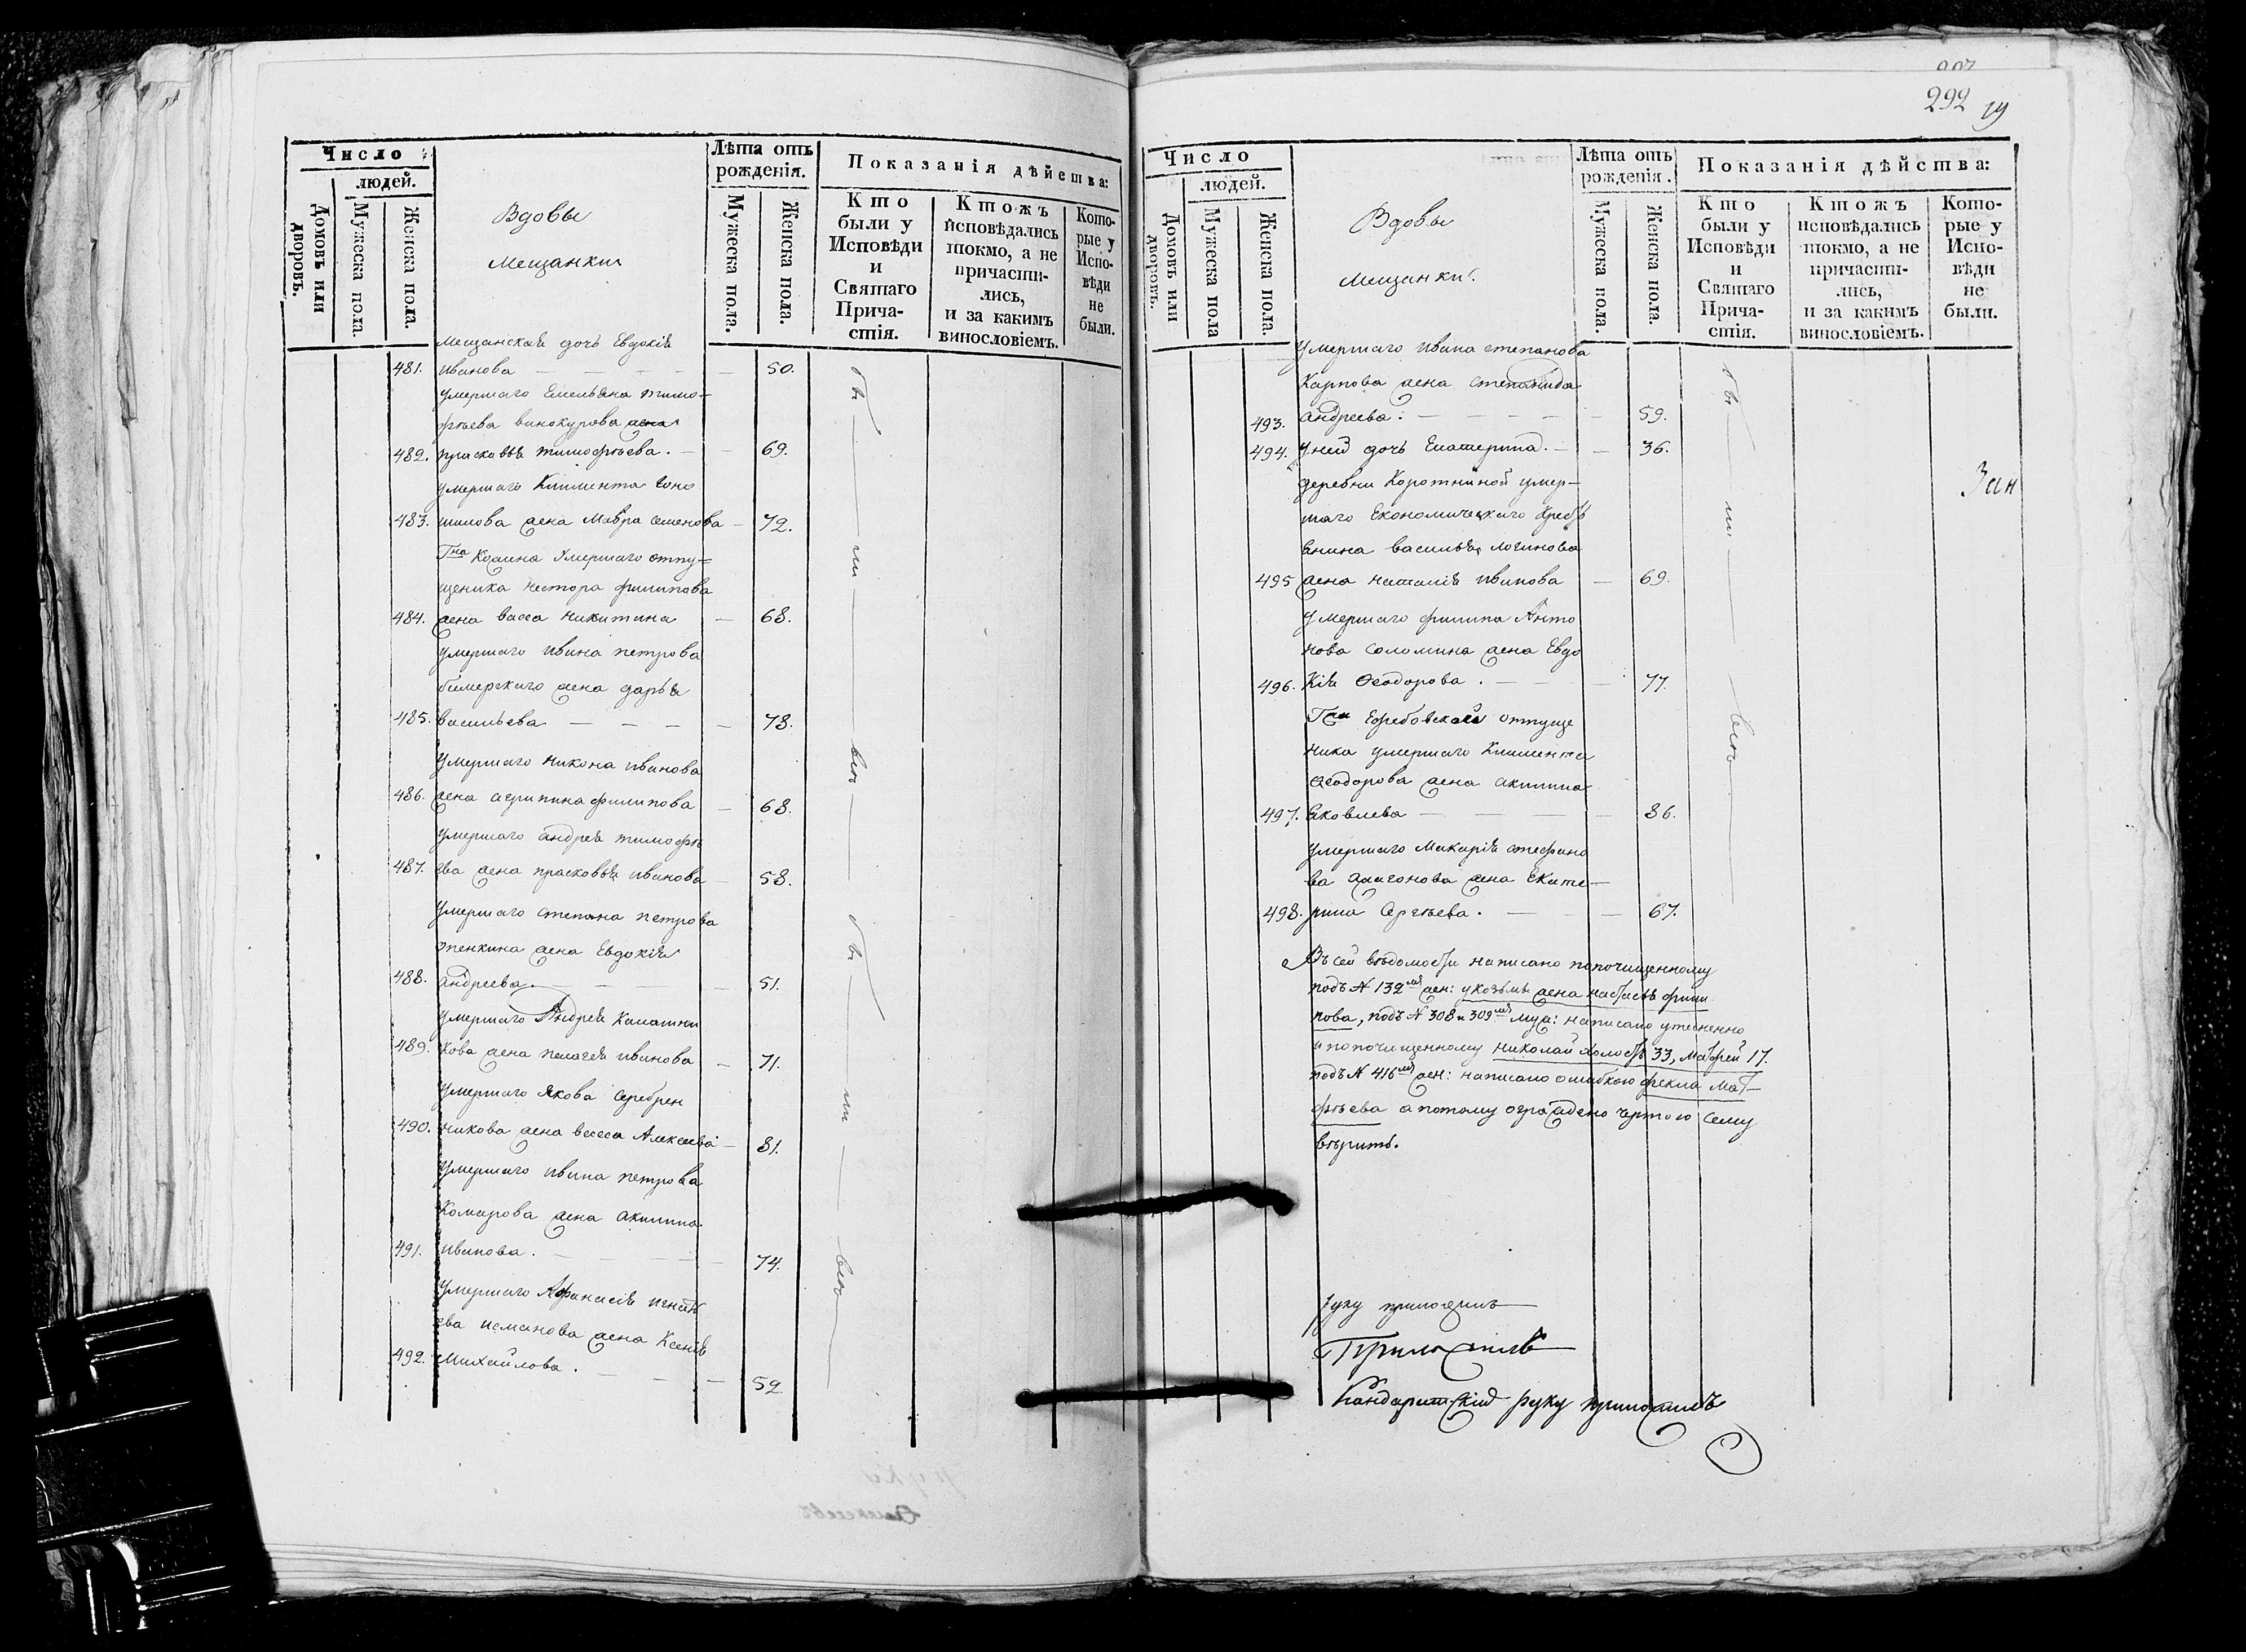 Число
людей.
Домовъ или дворовъ.
Мужеска пола.
Женска пола.
Вдовы
Мещанки
Лѣта отъ
рожденія.
Мужеска пола.
Женска пола.
Показанія дѣйства:
Кто
были у
Исповѣди
и
Святаго
Прича-
стія.
Ктожъ
исповѣдались
токмо, а не
причасти-
лись,
и за какимъ
винословіемъ.
Кото-
рые у
Испо-
вѣди
не
были.
Мещанская дочь Евдокія
481. Иванова — 50.
умершаго Емельяна тимо-
фѣева винокурова жена
482. прасковья тимофѣева. — 69.
умершаго Климента
483. жена Мавра семенова — 72.
Гна умершаго отпу-
щеника нестора филипова
484. жена васса никитина — 68.
умершаго ивана петрова
жена дарья
485. васильева — 78.
умершаго никона иванова
486. жена агрипина филипова — 68.
умершаго андрея тимофѣ
487. ева жена прасковья иванова — 58.
умершаго степана петрова
опенкина жена Евдокія
488. андреева. — 51.
умершаго Андрея Калашни
489. кова жена пелагея иванова — 71.
умершаго Якова серебрен
490. никова жена васса Алексеева — 81.
умершаго ивана петрова
Комарова жена акилина
491. иванова. — 74.
умершаго Афанасія игнать
ева жена Ксенія
492. Михайлова. — 52.
292
19
Число
людей.
Домовъ или дворовъ.
Мужеска пола
Женска пола.
Вдовы
Мещанки.
Лѣта отъ
рожденія.
Мужеска пола.
Женска пола.
Показанія дѣйства:
Кто
были у
Исповѣди
и
Святаго
Прича-
стія.
Ктожъ
исповѣдались
токмо, а не
причасти-
лись,
и за какимъ
винословіемъ.
Кото-
рые у
Испо-
вѣди
не
были.
умершаго ивана степанова
Карпова жена степанида
493. андреева. — 59.
494. у ней дочь Екатерина. — 36.
деревни Коротниной умер-
шаго Економическаго крестья
янина василья логинова
495 жена наталія иванова — 69.
умершаго филипа Анто
нова соломина жена Евдо
496. кія Ѳеодорова. — 77.
отпуще
ника умершаго Климента
Ѳеодорова жена акилина
497. Яковлева — 86.
умершаго Макарія стефано
ва жена Екате-
498. рина Сергѣева. — 67.
Въ сей вѣдомости написано попочищенному
подъ № 132мъ жен: жена настасья фили
пова, подъ № 308 и 309мъ муж: написано утесненно
и попочищенному николай холостъ 33, Матфей 17.
подъ № 416мъ жен: написано ошибкою фекла Мат-
фѣева а потому ограждено чертою сему
вѣрить.
руку приложилъ
Приложилъ
руку приложилъ